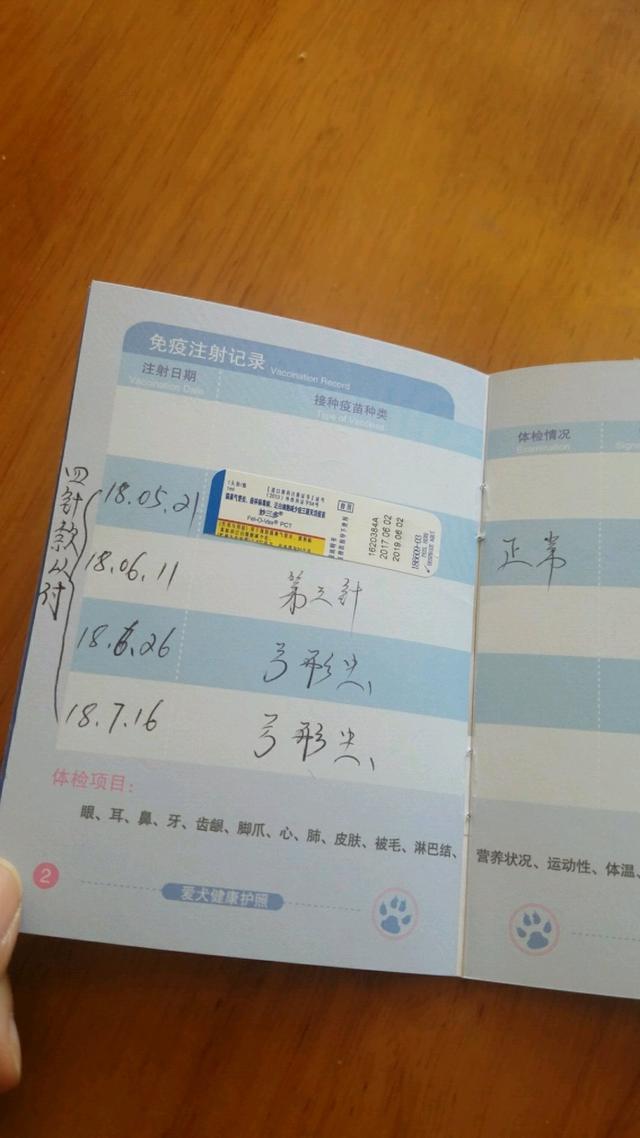 免疫注射记录 Vaccination Record
注射日期
Vaccination Date
接种疫苗种类
Type of Vaccines
体检情况
Examination
四针款以付
18.05.21
妙三多®
Fel-O-Vax® PCT
1620384A
2017.06.02
2019.06.02
正常
18.06.11
第三针
18.6.26
弓形虫
18.7.16
弓形虫
体检项目：
眼、耳、鼻、牙、齿龈、脚爪、心、肺、皮肤、被毛、淋巴结、
营养状况、运动性、体温、
2
爱犬健康护照